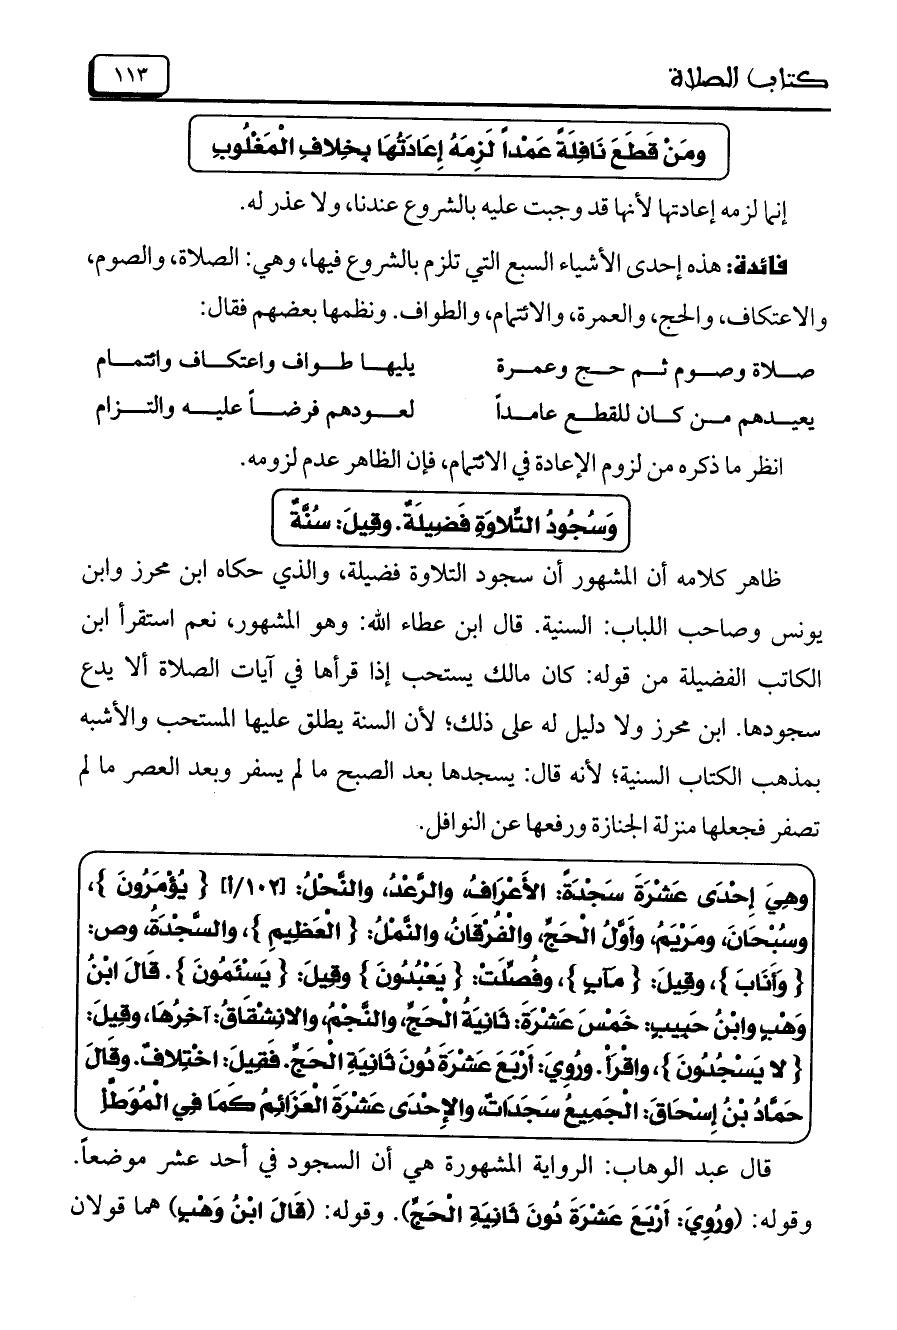 كتاب الصلاة
١١٣
ومَنْ قَطَعَ نَافِلَةً عَمْداً لَزِمَهُ إِعَادَتُهَا بِخِلافِ الْمَغْلُوبِ
إنما لزمه إعادتها لأنها قد وجبت عليه بالشروع عندنا، ولا عذر له.
فائدة: هذه إحدى الأشياء السبع التي تلزم بالشروع فيها، وهي: الصلاة، والصوم،
والاعتكاف، والحج، والعمرة، والائتمام، والطواف. ونظمها بعضهم فقال:
صلاة وصوم ثم حج وعمرة يليها طواف واعتكاف وائتمام
يعيدهم من كان للقطع عامداً لعودهم فرضاً عليه والتزام
انظر ما ذكره من لزوم الإعادة في الائتمام، فإن الظاهر عدم لزومه.
وَسُجُودُ التِّلاوَةِ فَضِيلَةٌ. وقِيلَ: سُنَّةٌ
ظاهر كلامه أن المشهور أن سجود التلاوة فضيلة، والذي حكاه ابن محرز وابن
يونس وصاحب اللباب: السنية. قال ابن عطاء الله: وهو المشهور، نعم استقرأ ابن
الكاتب الفضيلة من قوله: كان مالك يستحب إذا قرأها في آيات الصلاة ألا يدع
سجودها. ابن محرز ولا دليل له على ذلك؛ لأن السنة يطلق عليها المستحب والأشبه
بمذهب الكتاب السنية؛ لأنه قال: يسجدها بعد الصبح ما لم يسفر وبعد العصر ما لم
تصفر فجعلها منزلة الجنازة ورفعها عن النوافل.
وهِيَ إِحْدَى عَشْرَةَ سَجْدَةً: الأَعْرَافُ، والرَّعْدُ، والنَّحْلُ: [١٠٢/أ] { يُؤْمَرُونَ }،
وسُبْحَانَ، ومَرْيَمُ، وأَوَّلُ الحَجِّ، والْفُرْقَانُ، والنَّمْلُ: { الْعَظِيمِ }، والسَّجْدَةُ، وص:
{ وَأَنَابَ }، وقِيلَ: { مآبٍ }، وفُصِّلَتْ: { يَعْبُدُونَ } وقِيلَ: { يَسْئَمُونَ }. قَالَ ابْنُ
وَهْبٍ وابْنُ حَبِيبٍ: خَمْسَ عَشْرَةَ: ثَانِيَةُ الْحَجِّ، والنَّجْمُ، والانْشِقَاقُ: آخِرُهَا، وقِيلَ:
{ لا يَسْجُدُونَ }، واقْرَأْ. ورُوِيَ: أَرْبَعَ عَشْرَةَ دُونَ ثَانِيَةِ الْحَجِّ. فَقِيلَ: اخْتِلافٌ. وقَالَ
حَمَّادُ بْنُ إِسْحَاقَ: الْجَمِيعُ سَجَدَاتٌ، والإِحْدَى عَشْرَةَ الْعَزَائِمُ كَمَا فِي الْمُوَطَّأِ
قال عبد الوهاب: الرواية المشهورة هي أن السجود في أحد عشر موضعاً.
وقوله: (ورُوِيَ: أَرْبَعَ عَشْرَةَ دُونَ ثَانِيَةِ الْحَجِّ). وقوله: (قَالَ ابْنُ وَهْبٍ) هما قولان